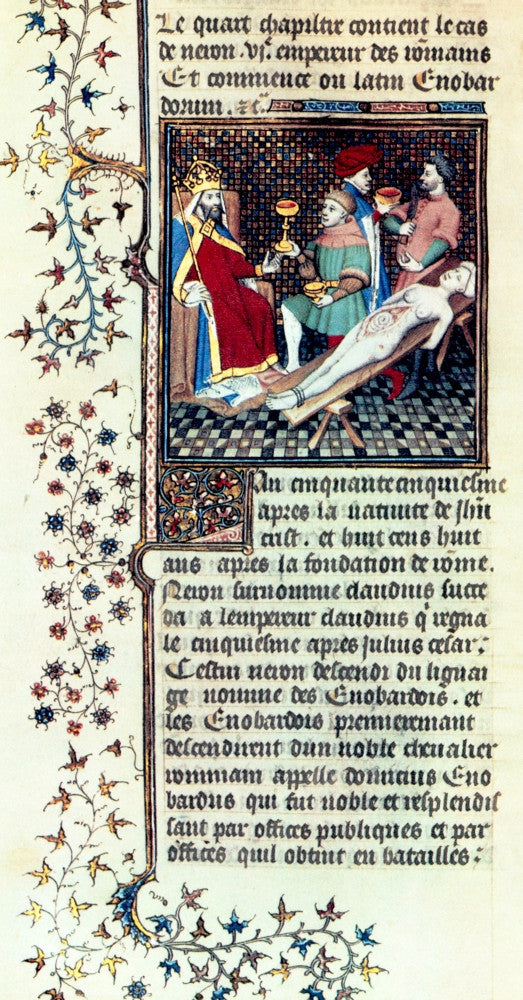 Le quart chapiltre contient le cas
de neron. vje. empereur des rommains
Et commence ou latin Enobar
dorum. &c.
Lan cinquante cinquiesme
apres la natiuite de Jhu
crist. et huit cens huit
ans apres la fondation de rome.
Neron surnomme claudius succe
da a lempereur claudius q̄ regna
le cinquiesme apres julius cesar.
Cestui neron descendi du lignai
ge nomme des Enobardois. et
les Enobardois premieremant
descendirent dun noble cheualier
rommain appelle domicius Eno
bardus qui fut noble et resplendis
sant par offices publiques et par
offices quil obtint en batailles.